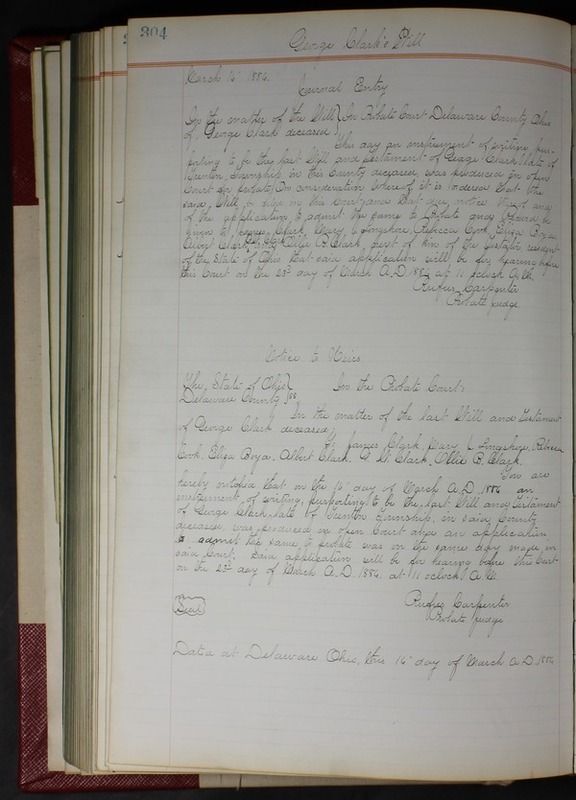 304
George Clark's Will
March 15" 1884.
Journal Entry
In the matter of the Will } In Probate Court Delaware County Ohio
of George Clark deceased.
This day an instrument of writing pur-
porting to be the last Will and testament of George Clark late of
Trenton Township in this County deceased, was produced in open
Court for probate, In consideration whereof it is ordered that the
said Will be filed in this Court and that due notice thereof and
of the application to admit the same to Probate and Record be
given to James Clark, Mary L Longshore, Rebecca Cook, Eliza Boyer,
Albert Clark, Ollie B. Clark, next of kin of the testator resident
of the State of Ohio that said application will be for hearing before
this Court on the 23d day of March A.D. 1884 at 11 oclock A.M.
Rufus Carpenter
Probate Judge
Notice to Heirs
The State of Ohio }
Delaware County } ss In the Probate Court.
In the matter of the last Will and Testament
of George Clark deceased;
To James Clark, Mary L. Longshore, Rebecca
Cook, Eliza Boyer, Albert Clark. Clark, Ollie B. Clark.
You are
hereby notified that on the 15" day of March A.D. 1884 an
instrument of writing, purporting to be the last Will and Testament
of George Clark late of Trenton Township, in said County
deceased, was produced in open Court and an application
to admit the same to probate was on the same day made in
said Court. Said application will be for hearing before this Court
on the 23d day of March A.D. 1884. at 11 oclock A.M.
Rufus Carpenter
Seal
Probate Judge
Data at Delaware Ohio, this day of March A.D. 1884